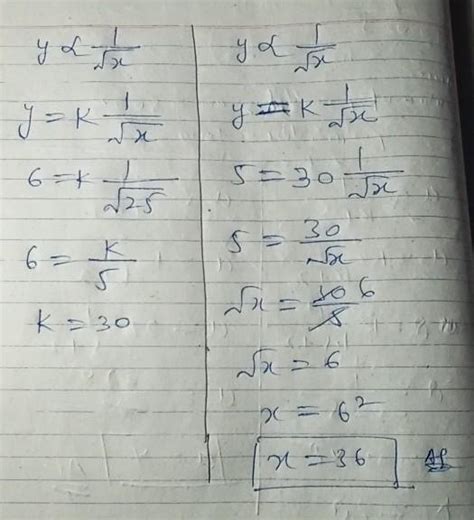 y ∝ 1/√x
y = K 1/√x
6 = K 1/√25
6 = K/5
K = 30
y ∝ 1/√x
y = K 1/√x
5 = 30 1/√x
5 = 30/√x
√x = 30/5 6
√x = 6
x = 6²
x = 36